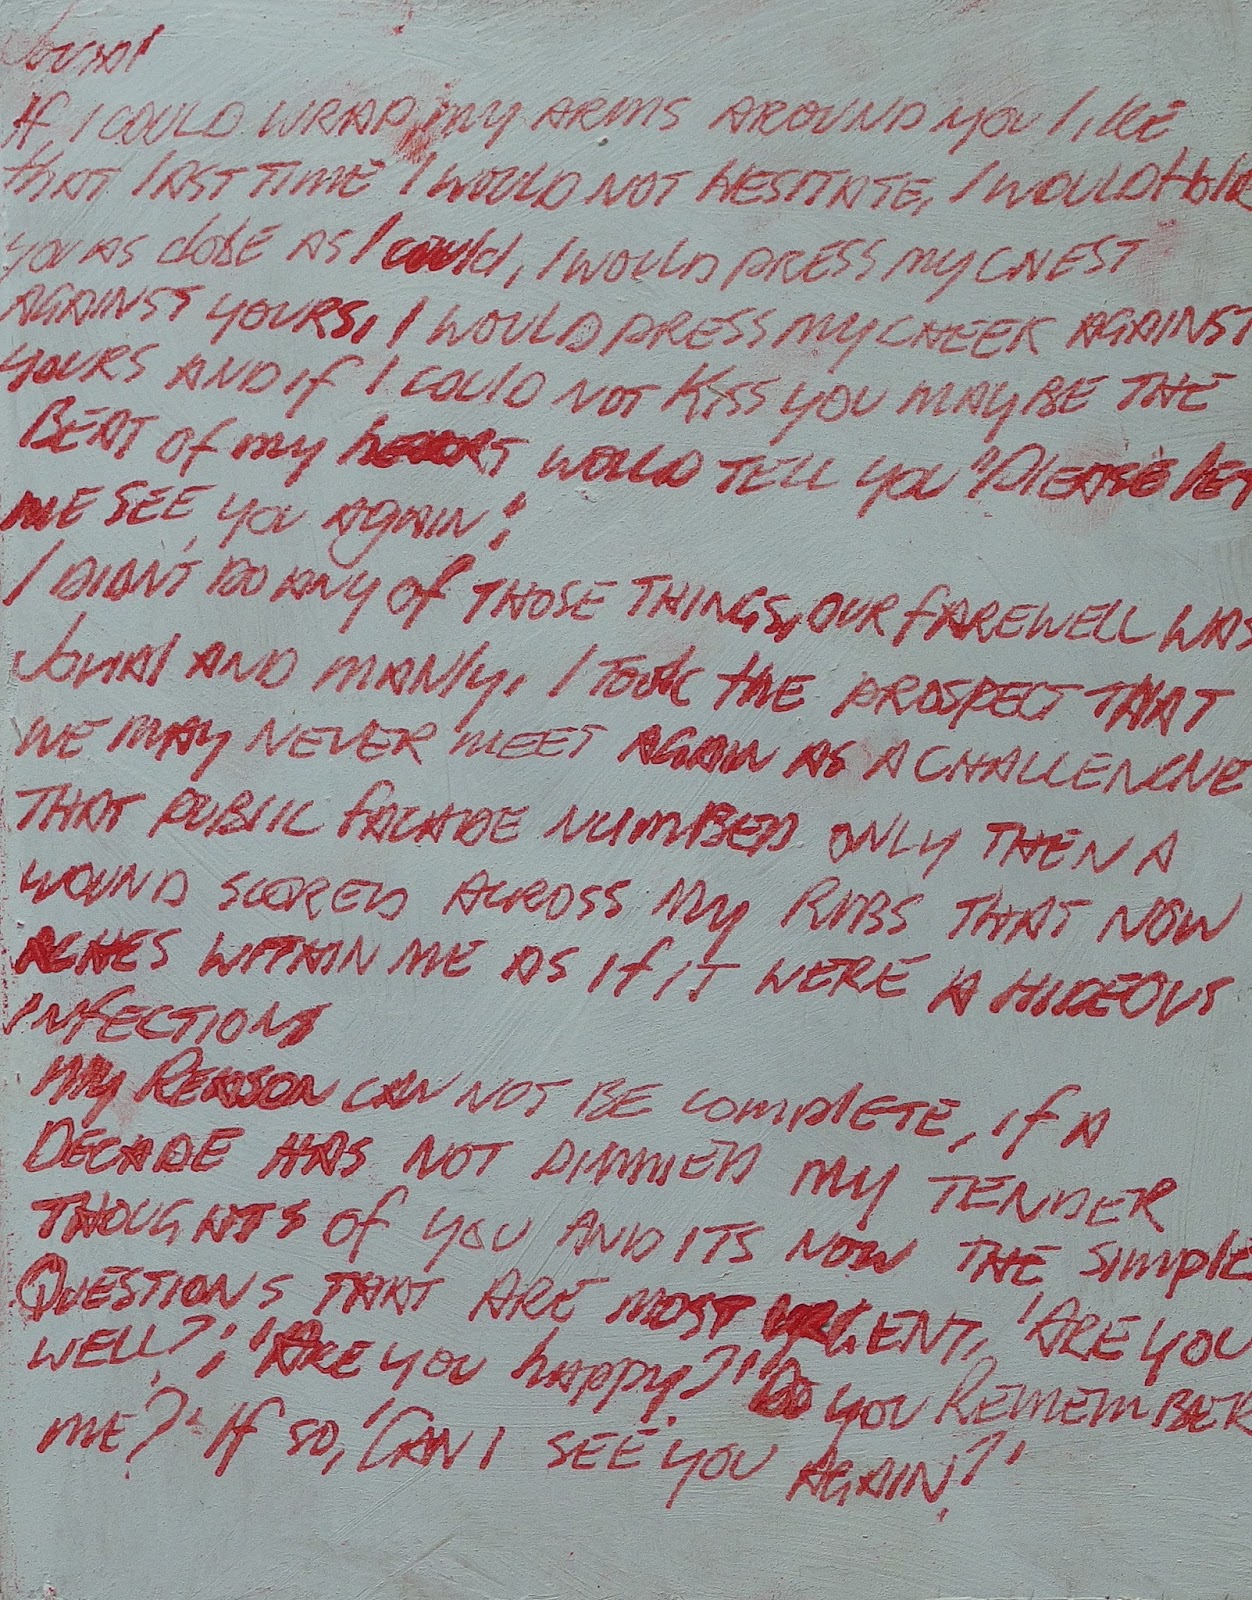 Jovial
If I COULD WRAP my ARMS AROUND YOU like
that last TIME I WOULD NOT HESITATE, I WOULD Hold
you as close AS I could, I WOULD PRESS my CHEST
AGAINST YOURS, I WOULD PRESS MY CHEEK AGAINST
YOURS AND if I COULD NOT KISS YOU MAYBE THE
BEAT of my heart would TELL YOU "PLEASE let
ME SEE YOU AGAIN";
I DIDN'T DO ANY of THOSE THINGS, OUR fAREWELL WAS
Jovial AND MANly, I Took the PROSPECT THAT
WE MAY NEVER MEET AGAIN AS A CHALLENGE
THAT PUBLIC fACADE NUMBED ONLY THEN A
WOUND SCORED ACROSS MY RIBS THAT NOW
ACHES WITHIN ME AS If IT WERE A HIDEOUS
INfECTION
MY REASON CAN NOT BE COMPLETE, If A
DECADE HAS NOT DIMMED MY TENDER
THOUGHTS Of YOU AND ITS NOW THE SIMPLE
QUESTIONS THAT ARE MOST URGENT, 'ARE YOU
WELL?'; 'ARE YOU happy?' 'DO YOU REMEMBER
ME?' If SO, 'CAN I SEE YOU AGAIN?'